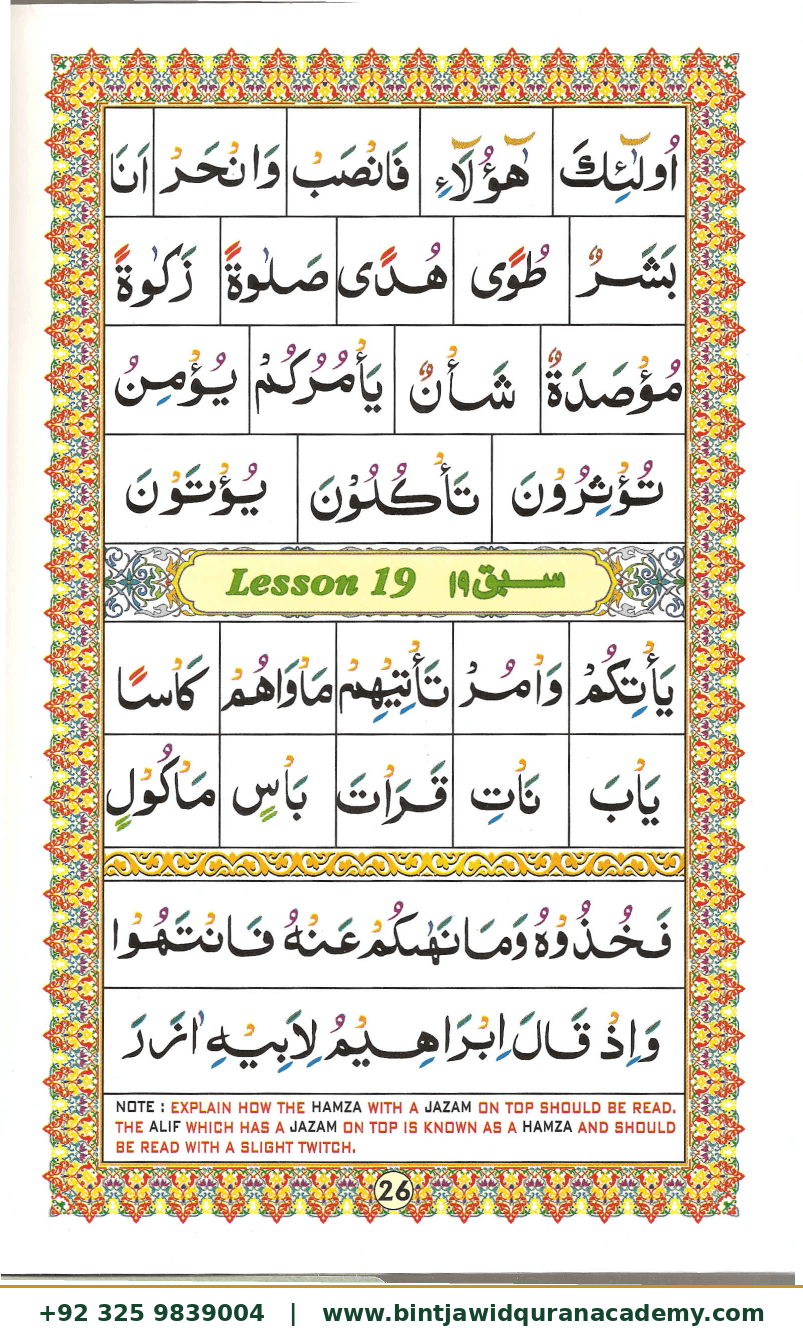 اُولٰٓئِكَ هٰٓؤُلَآءِ فَانْصَبْ وَانْحَرْ اَنَا
بَشَرٌ طُوًى هُدًى صَلٰوةً زَكٰوةً
مُؤْصَدَةٌ شَأْنٌ يَأْمُرُكُمْ يُؤْمِنُ
تُؤْثِرُوْنَ تَأْكُلُوْنَ يُؤْتَوْنَ
Lesson 19 سبق ۱۹
يَأْتِكُمْ وَاْمُرْ تَأْتِيْهِمْ مَاْوَاهُمْ كَاْسًا
يَاْبَ نَاْتِ قَرَاْتَ بَاْسٍ مَاْكُوْلٍ
فَخُذُوْهُ وَمَا نَهٰىكُمْ عَنْهُ فَانْتَهُوْا
وَاِذْ قَالَ اِبْرَاهِيْمُ لِاَبِيْهِ اٰزَرَ
NOTE : EXPLAIN HOW THE HAMZA WITH A JAZAM ON TOP SHOULD BE READ.
THE ALIF WHICH HAS A JAZAM ON TOP IS KNOWN AS A HAMZA AND SHOULD
BE READ WITH A SLIGHT TWITCH.
26
+92 325 9839004 | www.bintjawidquranacademy.com